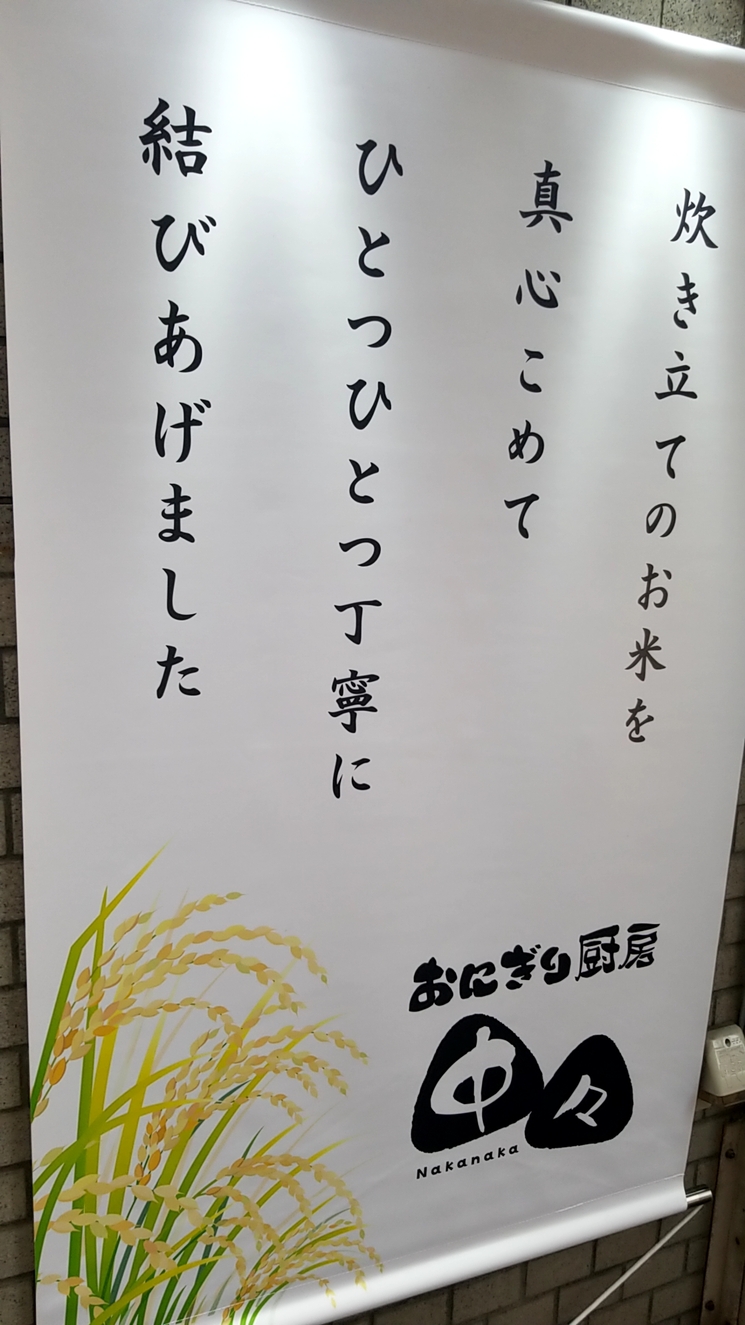 炊き立てのお米を
真心こめて
ひとつひとつ丁寧に
結びあげました
おにぎり厨房
中々
Nakanaka